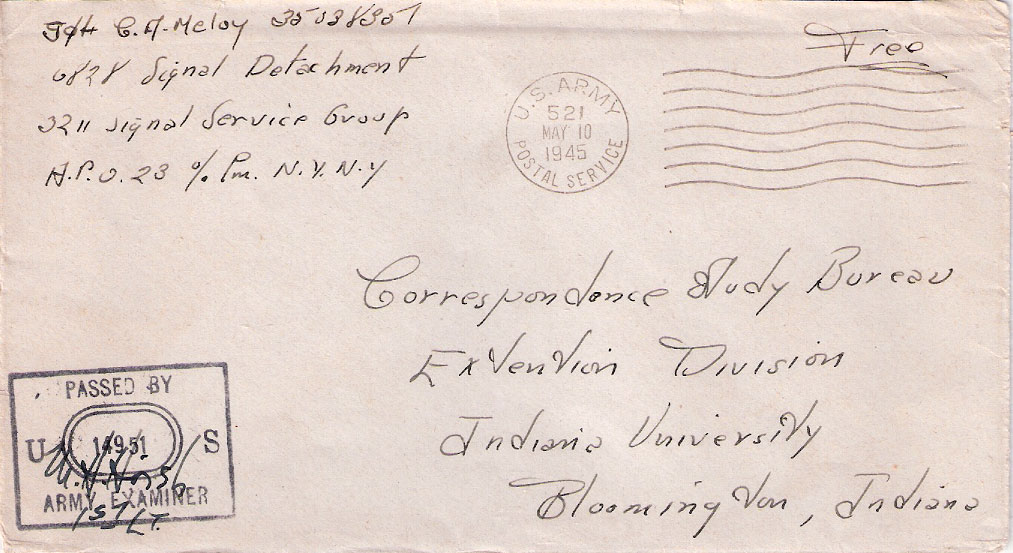 C. A. Meloy 35038351
6828 Signal Detachment
3211 Signal Service Group
A.P.O. 23 % Pm. N.Y. N.Y
Free
U.S. ARMY
521
MAY 10
1945
POSTAL SERVICE
Correspondence Study Bureau
Extention Division
Indiana University
Bloomington, Indiana
PASSED BY
U 14951 S
ARMY EXAMINER
1st LT.